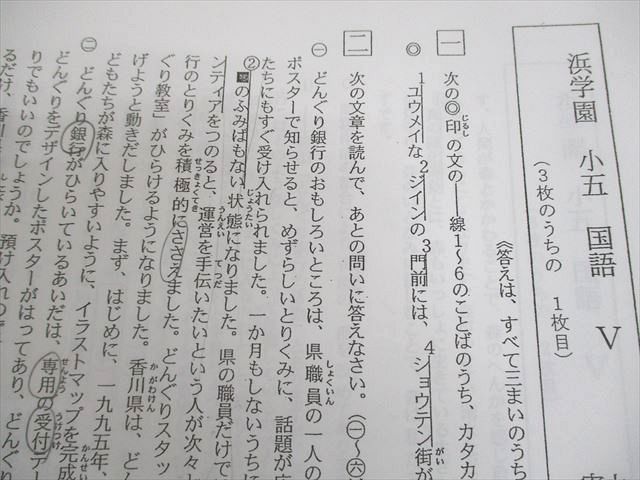 浜学園 小五 国語 Ⅴ
(3枚のうちの 1枚目)
《答えは、すべて三まいのうち
一 次の◎印の文の――線1〜6のことばのうち、カタカ
◎ 1ユウメイな2ジインの3門前には、4ショウテン街が
二 次の文章を読んで、あとの問いに答えなさい。(㈠〜㈥
㈠ どんぐり銀行のおもしろいところは、県職員の一人の
ポスターで知らせると、めずらしいとりくみに、話題が広
たちにもすぐ受け入れられました。一か月もしないうちに
②のふみばもない状態になりました。県の職員だけで
ンティアをつのると、運営を手伝いたいという人が次々と
行のとりくみを積極的にささえました。どんぐりスタッ
ぐり教室」がひらけるようになりました。香川県は、どん
げようと動きだしました。まず、はじめに、一九九五年、
どもたちが森に入りやすいように、イラストマップを完成
㈡ どんぐり銀行がひらいているあいだは、専用の受付テー
どんぐりをデザインしたポスターがはってあり、どんぐり
りでもいいのでしょうか。預け入れので
るだけ、香川